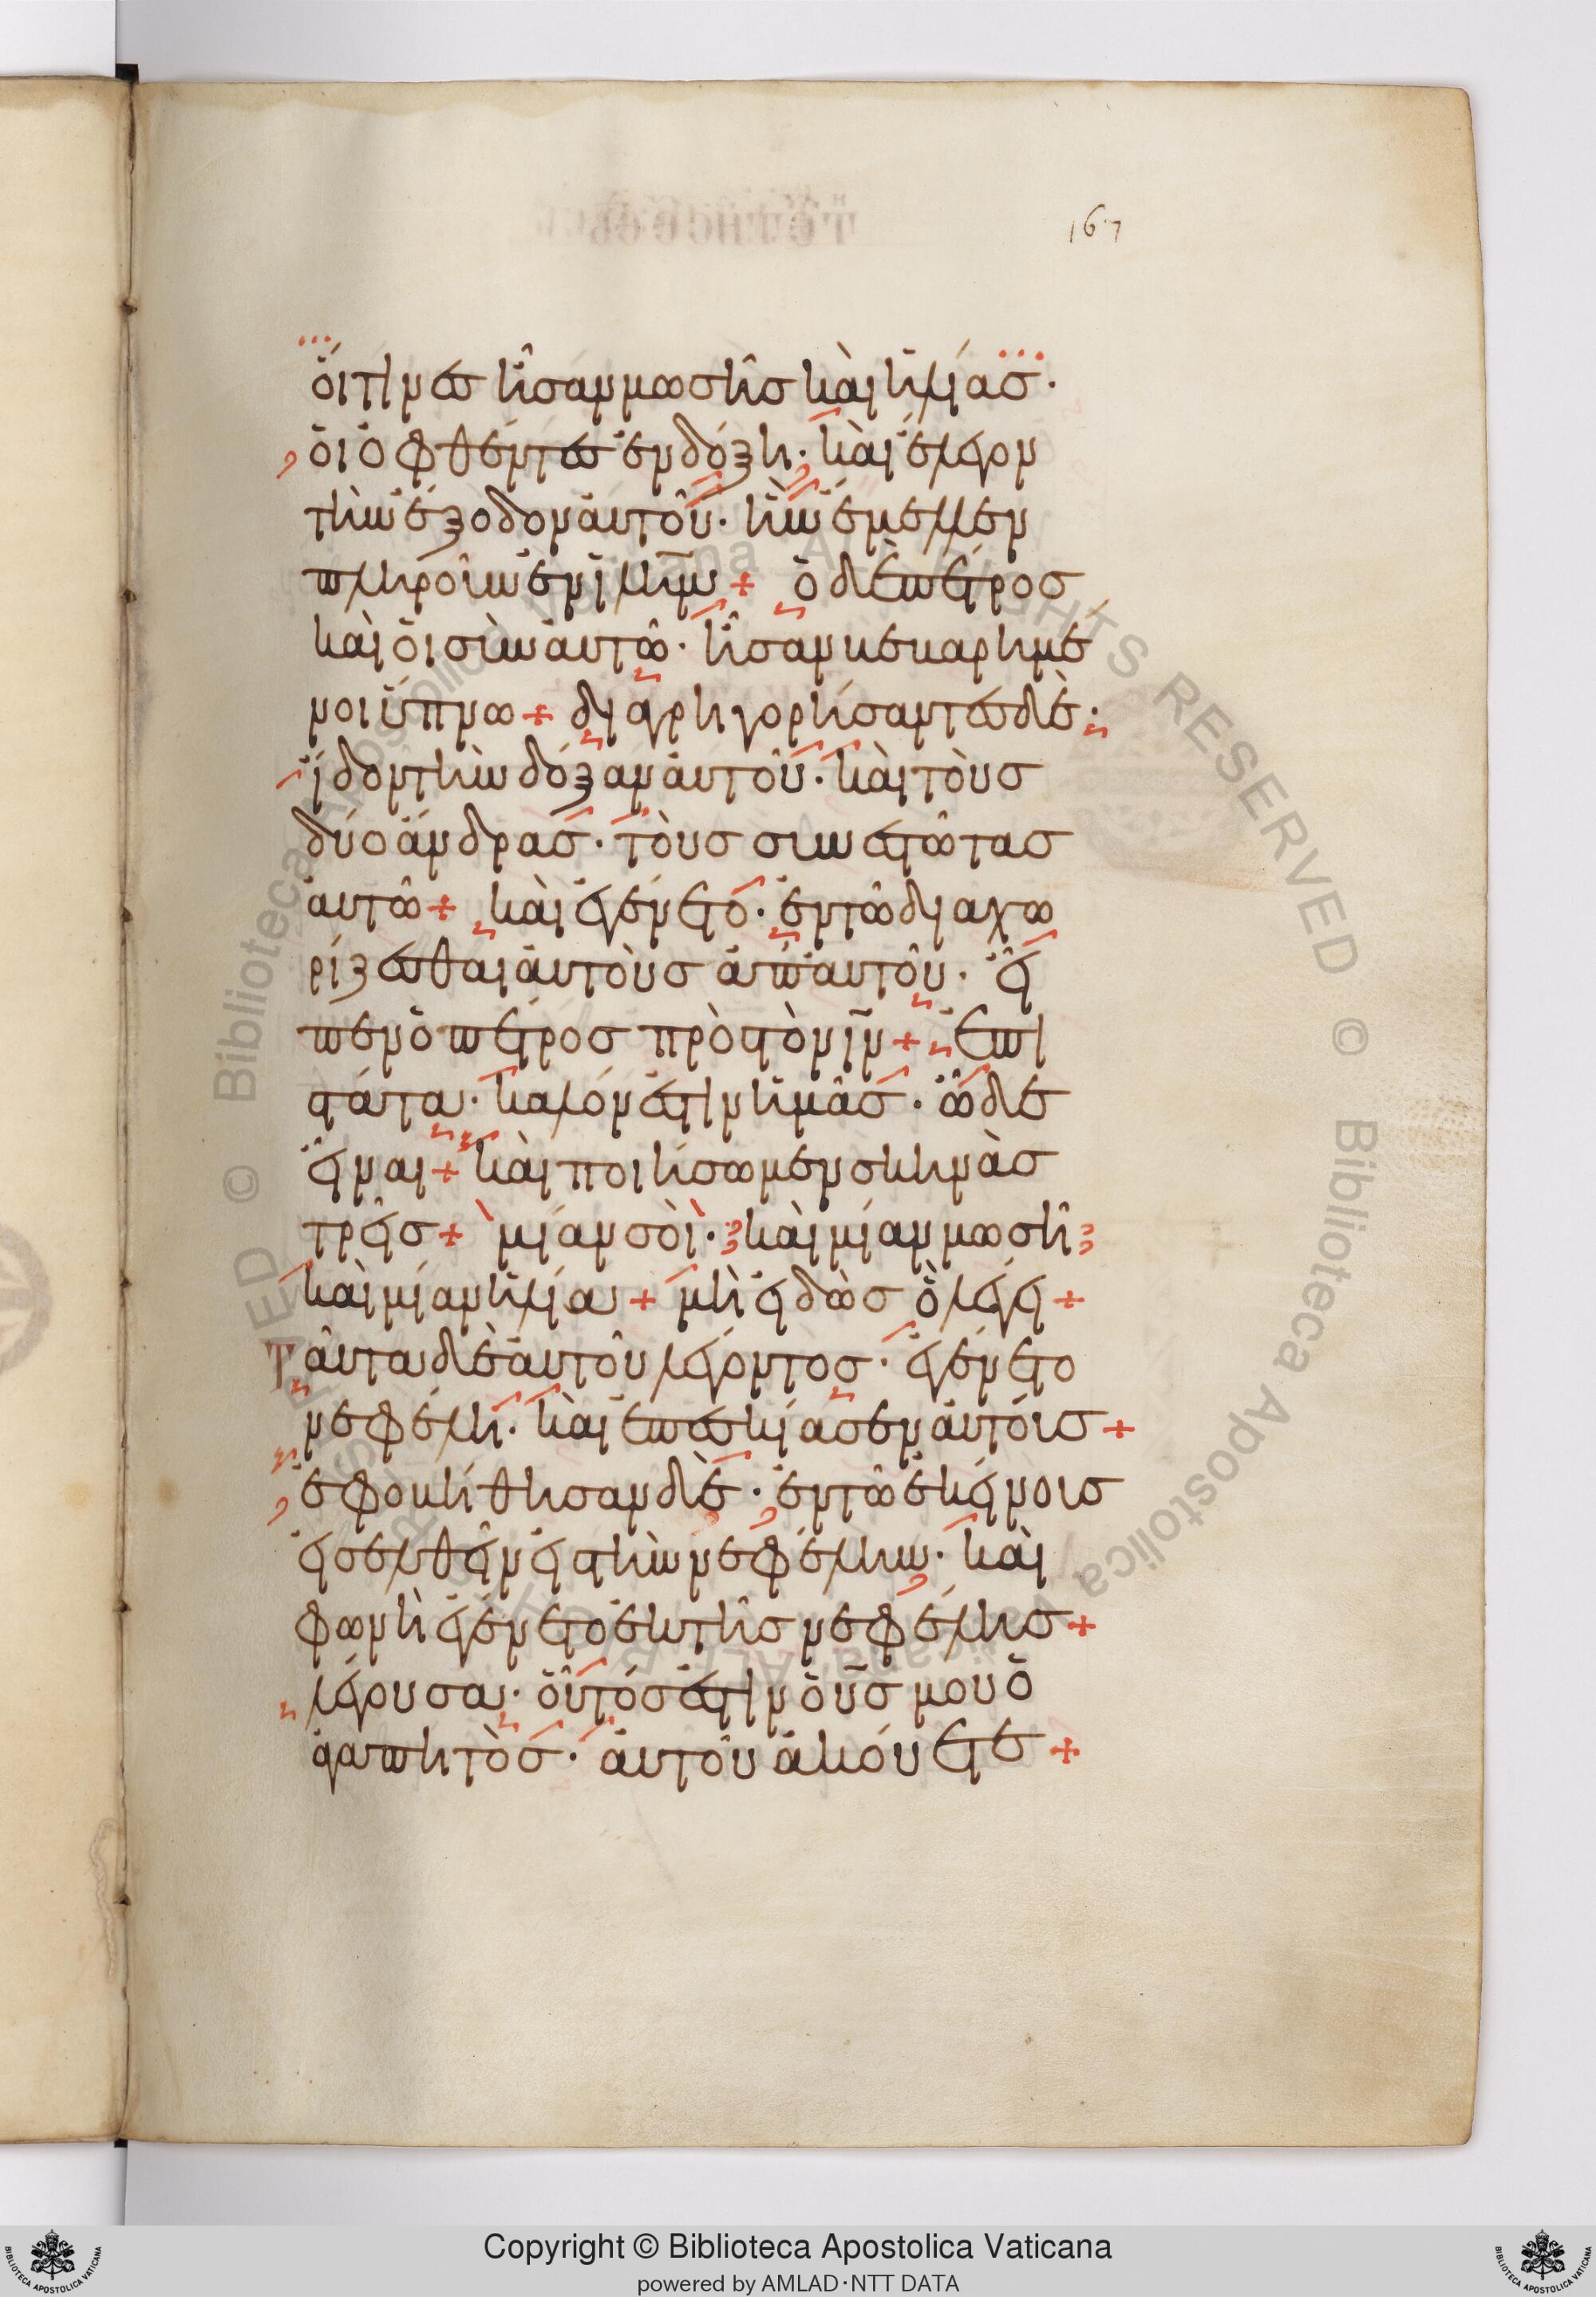 167
ὅιτινεσ ἦσαν μωσῆσ καὶ ἡλίασ·
ὁι ὀφθέντεσ ἐν δόξη· καὶ ἔλεγον
τὴν ἔξοδον ἀυτοῦ· ἣν ἔμελλεν
πληροῦν ἐν ϊλημ + ὁ δὲ πέτροσ
καὶ ὁι σὺν ἀυτῶ· ἦσαν κεκαρημέ
νοι ὕπνω + διαγρηγορήσαντεσ δὲ·
ἴδον τὴν δόξαν ἀυτοῦ· καὶ τοὺσ
δύο ἄνδρασ· τοὺσ συνεστῶτασ
ἀυτῶ + καὶ ἐγένετο· ἐν τῶ διαχω
ρίζεσθαι ἀυτοὺσ ἀπ' ἀυτοῦ· εἶ
πεν ὁ πέτροσ πρὸσ τὸν ιν + ἐπι
στάτα· καλόν ἐστιν ἡμᾶσ· ὧδε
εἶναι + καὶ ποιήσωμεν σκηνὰσ
τρεῖσ + μίαν σοὶ· καὶ μίαν μωσῆ
καὶ μίαν ἡλία + μὴ εἰδὼσ ὃ λέγει +
Ταῦτα δὲ ἀυτοῦ λέγοντοσ· ἐγένετο
νεφέλη· καὶ ἐπεσκίασεν ἀυτόισ +
ἐφοβήθησαν δὲ· ἐν τῶ ἐκείνοισ
εἰσελθεῖν εἰσ τὴν νεφέλην· καὶ
φωνὴ ἐγένετο ἐκ τῆσ νεφέλησ +
λέγουσα· οὗτόσ ἐστιν ὁ υσ μου ὁ
ἀγαπητὸσ· ἀυτοῦ ἀκούετε +
Copyright © Biblioteca Apostolica Vaticana
powered by AMLAD·NTT DATA